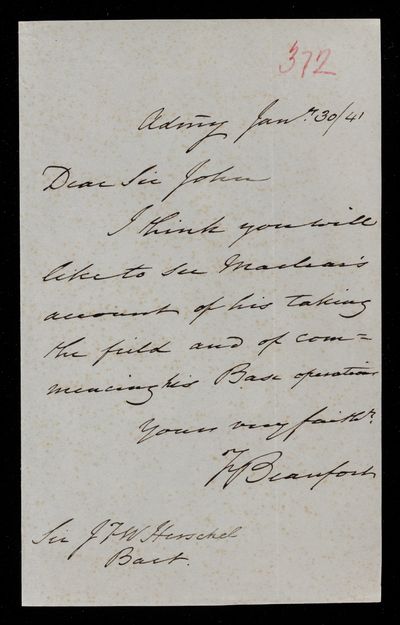 372
Admy Jany 30/41
Dear Sir John
I think you will
like to see Maclear's
account of his taking
the field and of com=
mencing his Base operations
Yours very faithy
F Beaufort
Sir J F W Herschel
Bart.